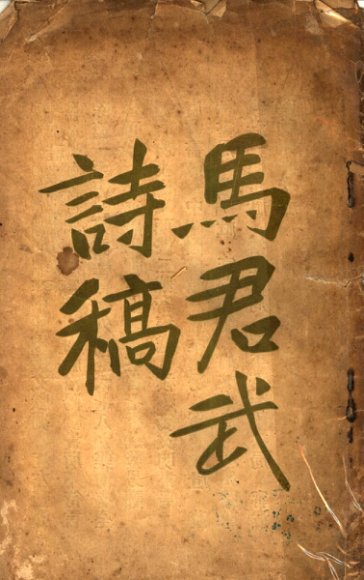 馬君武
詩稿